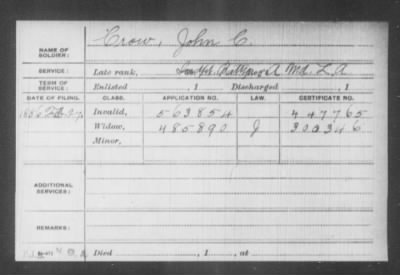 NAME OF SOLDIER: Crow, John C.
SERVICE: Late rank, Batty A Md. L A
TERM OF SERVICE: Enlisted , 1 Discharged , 1
DATE OF FILING. CLASS. APPLICATION NO. LAW. CERTIFICATE NO.
1886 Invalid, 563854 447765
Widow, 485890 J 300346
Minor,
ADDITIONAL SERVICES:
REMARKS:
Died , 1 , at